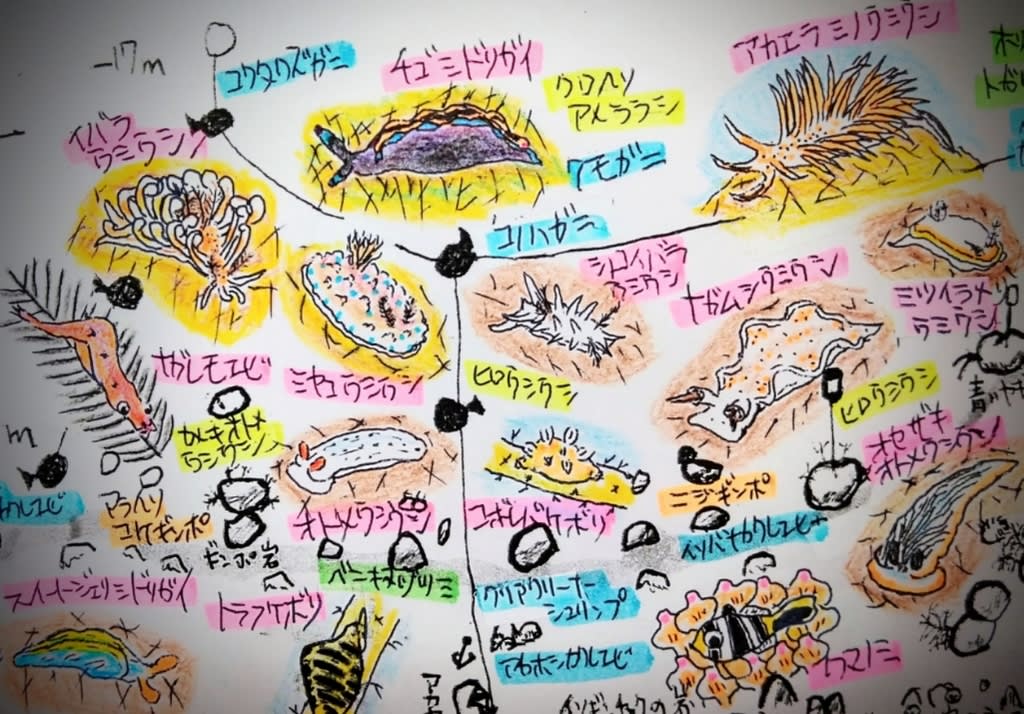 -17m
コワタクズガニ
チゴミドリガイ
クロヘリ
アメフラシ
アカエラミノウミウシ
イバラ
ウミウシ
モガニ
コノハガニ
シロイバラ
ウミウシ
ナガムシウミウシ
ミツイラメリ
ウミウシ
ガレモエビ
ミヤコウミウシ
ヒロウミウシ
ヒロウミウシ
カメキオトメ
ウミウシ
オセザキ
オトメウミウシ
m
かくれエビ
アライソ
コケギンポ
オトメウミウシ
コボレバケボリ
ニジギンポ
ギンポ岩
イソバナカクレエビ
ベニキヌヅツミ
クリアクリーナー
シュリンプ
スイートジェリーミドリガイ
トラフケボリ
アカホシカクレエビ
クマノミ